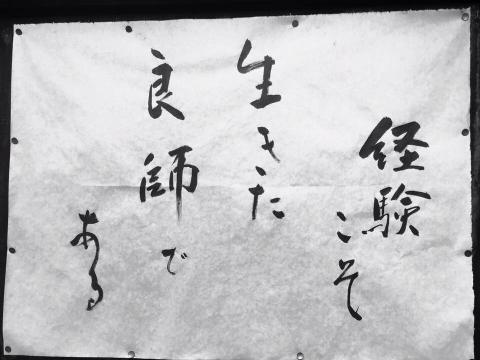 経験こそ
生きた
良師で
ある